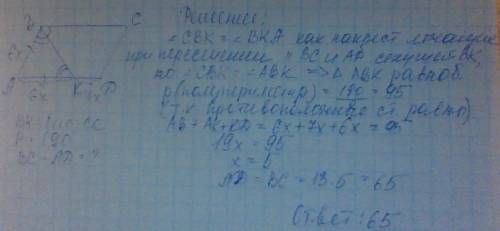 Решение:
∠CBK = ∠BKA как накрест лежащие
при пересечении BC и AD секущей BK,
то ∠CBK = ∠ABK => Δ ABK равноб
p(полупериметр) = 190 = 95
(т.к. противоположные ст. равны).
AB + AK + KD = 6x + 7x + 6x = 95
19x = 95
x = 5
AD = BC = 13·5 = 65
Ответ: 65
B C
6x
A 6x K 7x D
BK
P = 190
BC = AD = ?